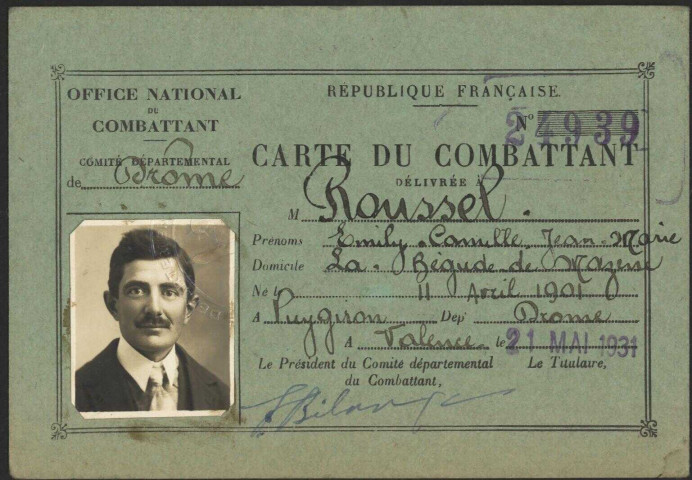 OFFICE NATIONAL
DU
COMBATTANT
COMITÉ DÉPARTEMENTAL
de Drôme
RÉPUBLIQUE FRANÇAISE
N° 24939
CARTE DU COMBATTANT
DÉLIVRÉE À
M Roussel.
Prénoms Emily Camille Jean-Marie
Domicile La Bégude-de-Mazenc
Né le 11 Avril 1901
A Puygiron Dep^t Drome
A Valence le 21 MAI 1931
Le Président du Comité départemental
du Combattant,
Le Titulaire,